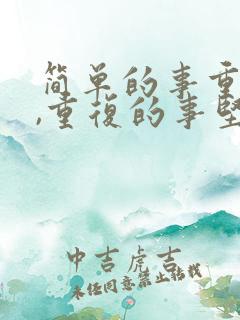 简单的事重
,重復的事坚
中吉虎吉
未经同意禁止转载